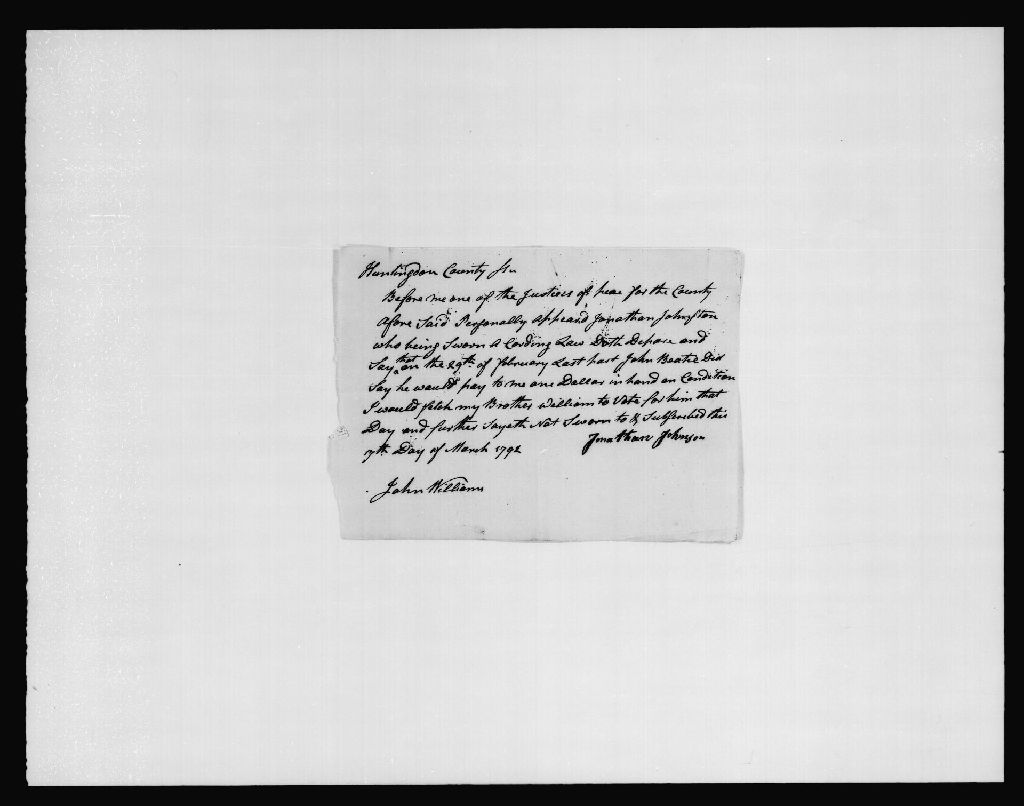 Huntingdon County Ss
Before me one of the Justices of peac for the County
Afore Said Personally Appeard Jonathan Johnston
who being Sworn A Cording Law Doth Depose and
Say that on the 29th of february Last past John Beatie Did
Say he would pay to me one Dollar in hand on Condition
I would fetch my Brother William to Vote for him that
Day and further Sayeth Not Sworn to & Subscribed this
7th Day of March 1792 Jonathan Johnson
John Williams